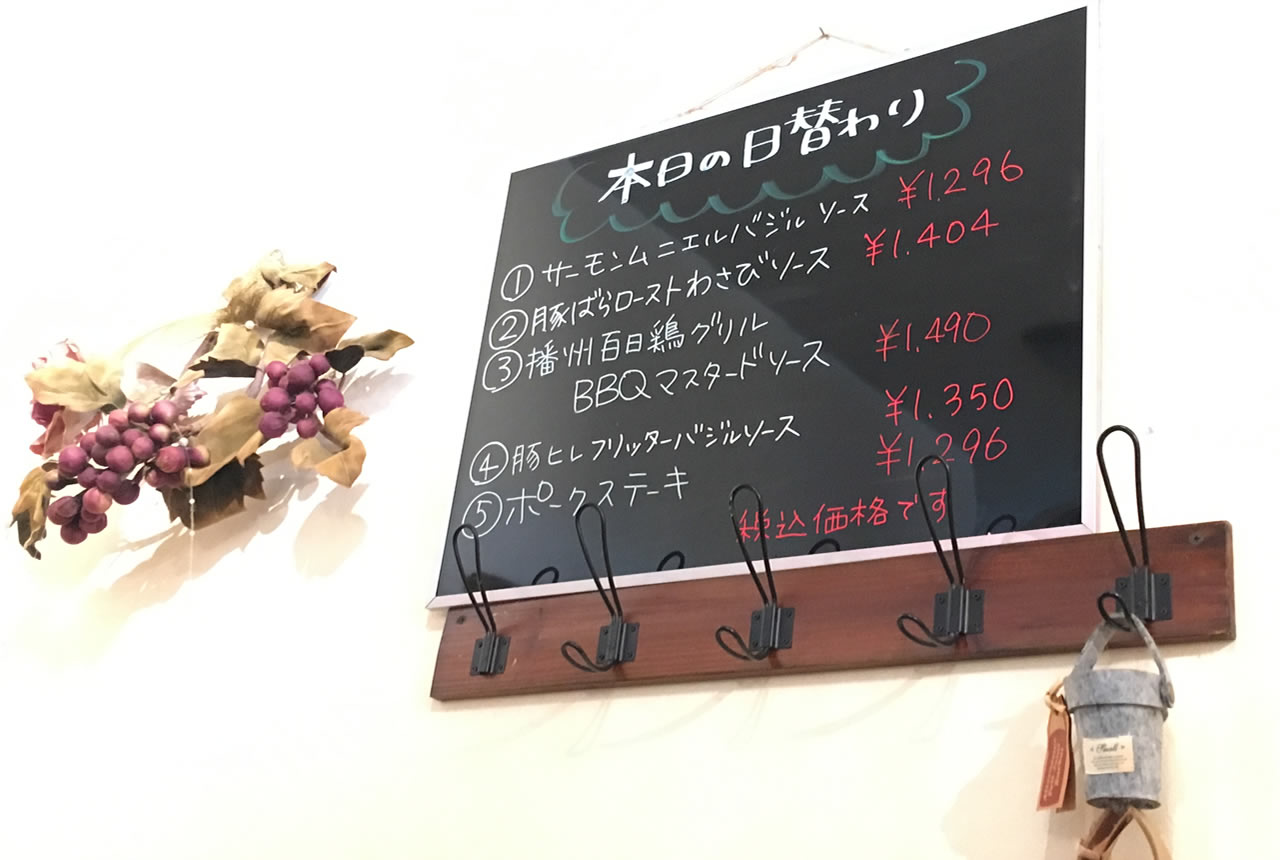 本日の日替わり
① サーモンムニエルバジルソース ¥1.296
② 豚ばらローストわさびソース ¥1.404
③ 播州百日鶏グリル
BBQマスタードソース ¥1.490
④ 豚ヒレフリッターバジルソース ¥1.350
⑤ ポークステーキ ¥1.296
税込価格です